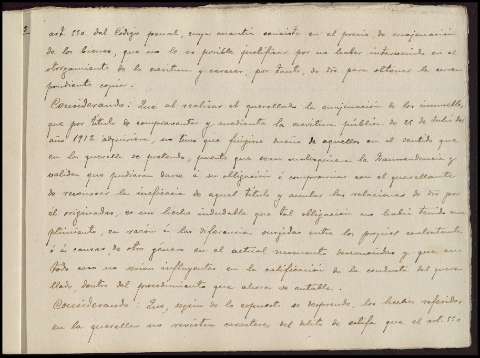 art. 550 del Código penal, cuya cuantía consiste en el precio de enajenación
de los bienes, que no le es posible justificar por no haber intervenido en el
otorgamiento de la escritura y carecer, por tanto, de dro para obtener la corres-
pondiente copia.
Considerando: Que al realizar el querellado la enajenación de los inmuebles,
que por título de compraventa y mediante la escritura pública de 25 de Julio del
año 1912 adquiriera, no tuvo que fingirse dueño de aquellos en el sentido que
en la querella se pretende, puesto que sean cualesquiera la transcendencia y
validez que pudieran darse a su obligación o compromiso con el querellante
de reconocer la ineficacia de aquel título y anular las relaciones de dro por
él originadas, es un hecho indudable que tal obligación no había tenido cum-
plimiento, en razón a las diferencias surgidas entre los propios contratantes
ó á causas de otro género en el actual momento desconocidas y que en
todo caso no serían influyentes en la calificación de la conducta del quere-
llado, dentro del procedimiento que ahora se entabla.
Considerando: Que, según de lo expuesto se desprende, los hechos referidos
en la querella no revisten caracteres del delito de estafa que el art. 550